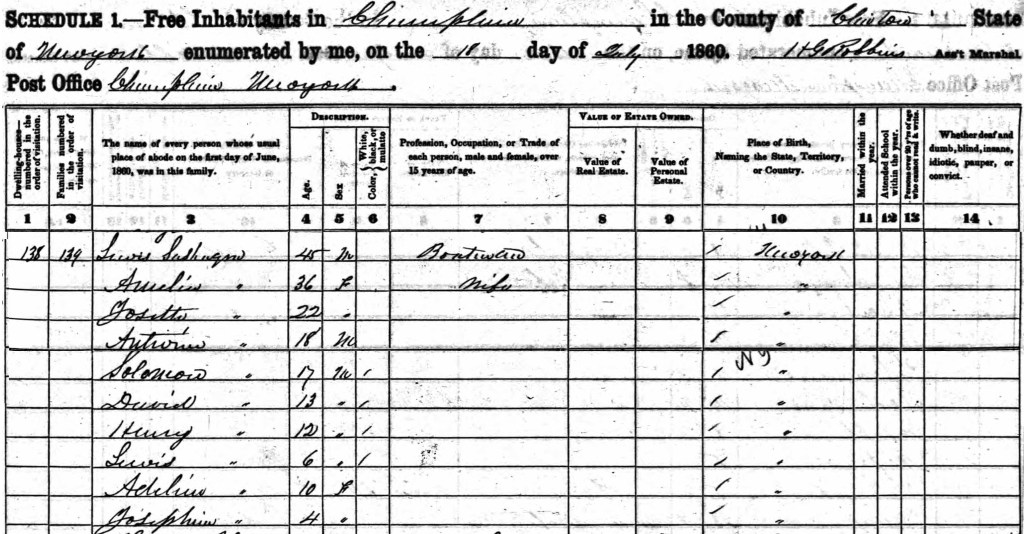 SCHEDULE 1.—Free Inhabitants in Champlain in the County of Clinton State
of Newyork enumerated by me, on the 10 day of July 1860. H G Robbins Ass't Marshal
Post Office Champlain Newyork.
Dwelling-houses—numbered in the order of visitation.
Families numbered in the order of visitation.
The name of every person whose usual place of abode on the first day of June, 1860, was in this family.
DESCRIPTION.
Age.
Sex
Color, White, black, or mulatto
Profession, Occupation, or Trade of each person, male and female, over 15 years of age.
VALUE OF ESTATE OWNED.
Value of Real Estate.
Value of Personal Estate.
Place of Birth, Naming the State, Territory, or Country.
Married within the year.
Attended School within the year.
Persons over 20 y'rs of age who cannot read & write.
Whether deaf and dumb, blind, insane, idiotic, pauper, or convict.
1 2 3 4 5 6 7 8 9 10 11 12 13 14
138 139 Lewis 45 M Boatman Newyork
Amelia " 36 F Wife "
Josette " 22 " "
Antwine " 18 M "
NY
Solomon " 17 M "
David " 13 " "
Henry " 12 " "
Lewis " 6 " "
Adeline " 10 F "
Josephine " 4 " "